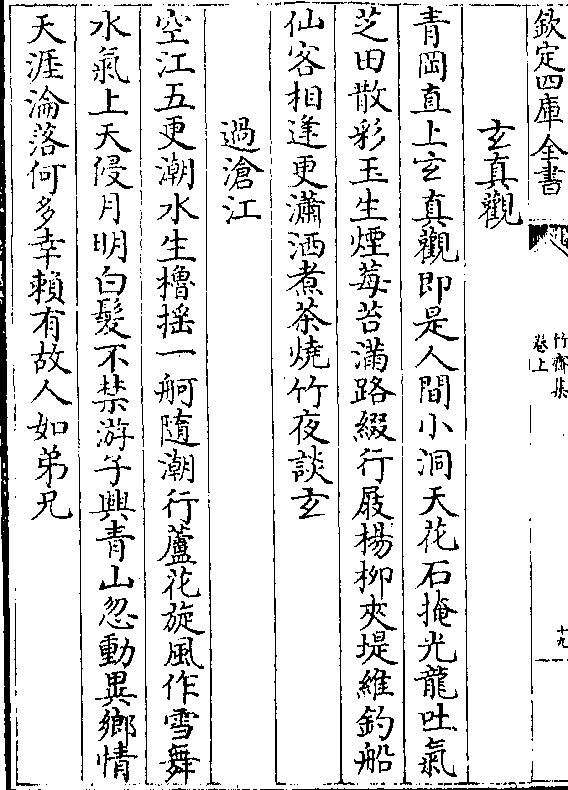 欽定四庫全書
竹齋集
卷上
十九
玄真觀
青岡直上玄真觀即是人間小洞天花石掩光龍吐氣
芝田散彩玉生煙莓苔滿路綴行屐楊柳夾堤維釣船
仙客相逢更瀟洒煮茶燒竹夜談玄
過滄江
空江五更潮水生櫓摇一舸隨潮行蘆花旋風作雪舞
水氣上天侵月明白髮不禁游子興青山忽動異鄉情
天涯淪落何多幸賴有故人如弟兄